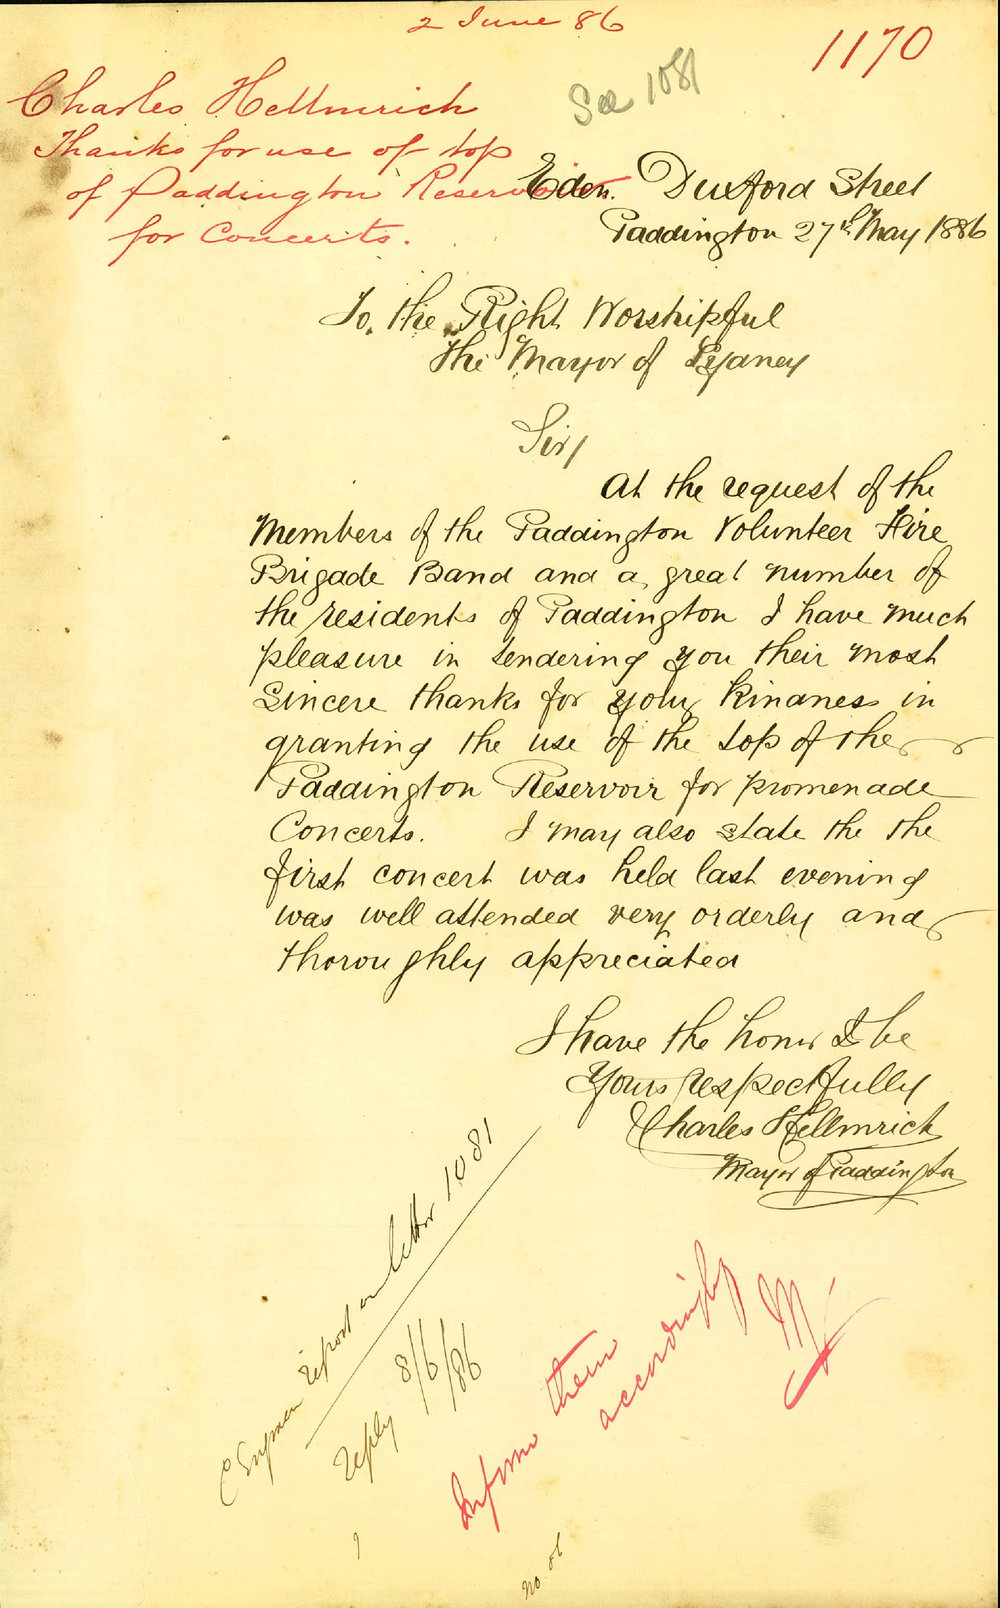 2 June 86
1170
See 1081
Charles Hellmrich
Thanks for use of top
of Paddington Reservoir
for Concerts.
Eden. Duxford Street
Paddington 27th May 1886
To, the Right Worshipful
The Mayor of Sydney
Sir/
At the request of the
Members of the Paddington Volunteer Fire
Brigade Band and a great number of
the residents of Paddington I have much
pleasure in tendering you their most
Sincere thanks for your kindness in
granting the use of the top of the
Paddington Reservoir for promenade
Concerts. I may also state the the
first concert was held last evening
was well attended very orderly and
thoroughly appreciated
I have the honor to be
Yours respectfully
Charles Hellmrich
Mayor of Paddington
report on letter 1081
reply 8/6/86
Inform them
accordingly